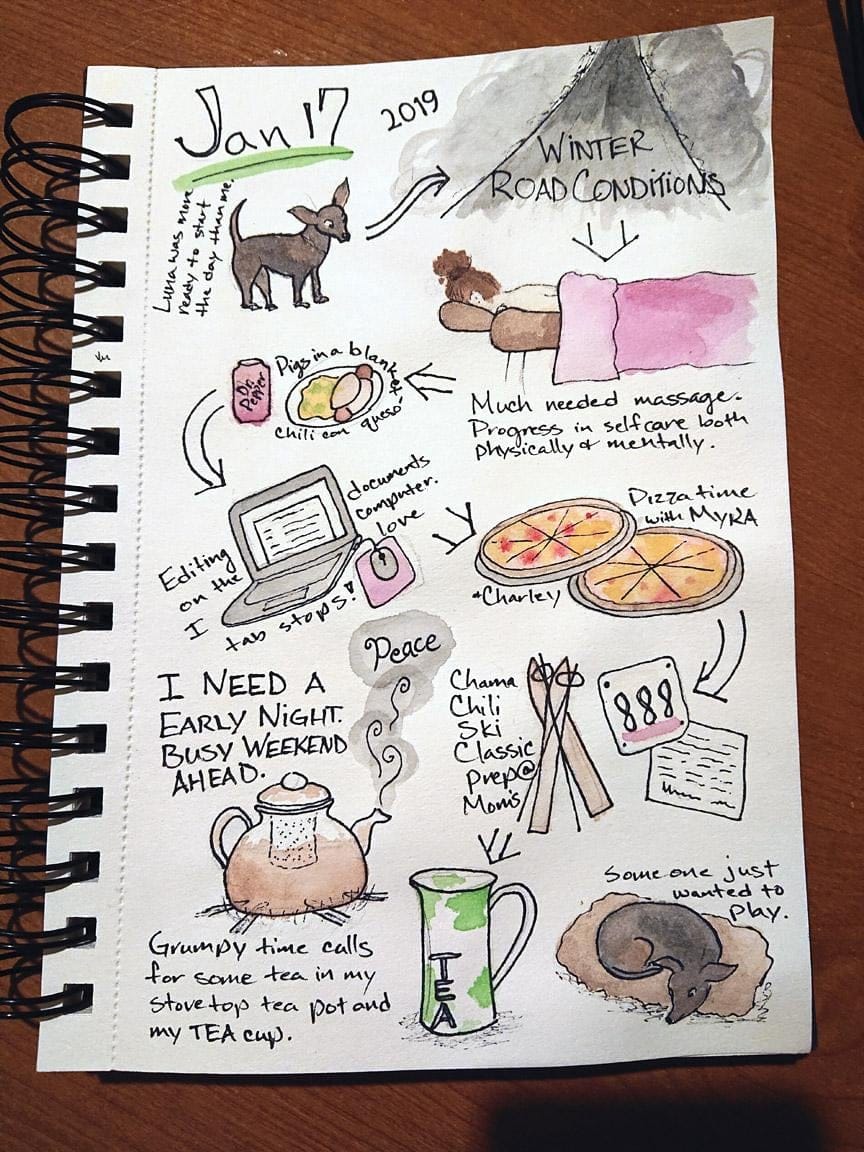 Jan 17
2019
Luna was more
ready to start
the day than me.
WINTER
ROAD CONDITIONS
Much needed massage.
Progress in selfcare both
physically & mentally.
Pigs in a blanket
chili con queso
Dr.
Pepper
Editing
on the
documents
computer.
I
love
tab stops!
Pizza time
with MYRA
+Charley
888
Chama
Chili
Ski
Classic
Prep@
Mom's
TEA
Someone just
wanted to
play.
Peace
I NEED A
EARLY NIGHT.
BUSY WEEKEND
AHEAD.
Grumpy time calls
for some tea in my
stovetop tea pot and
my TEA cup.